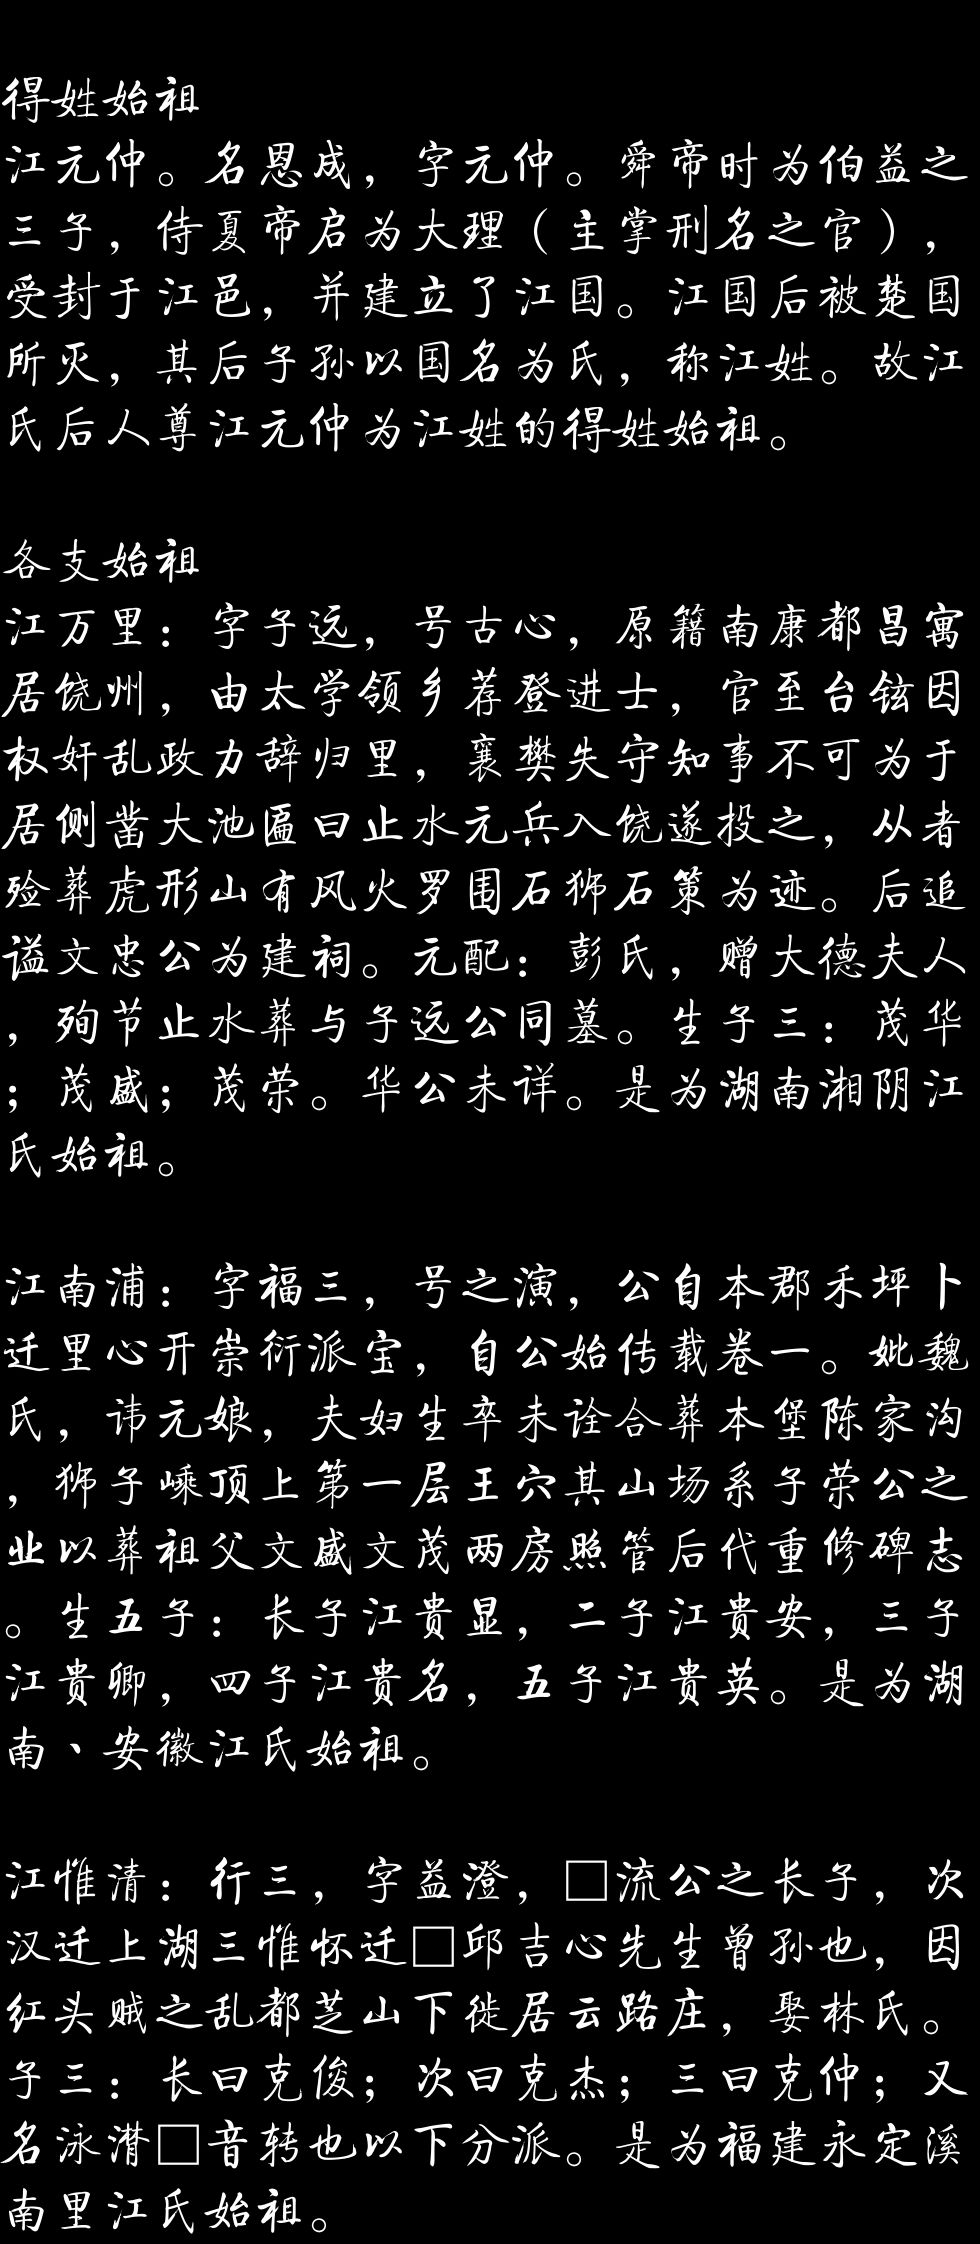 得姓始祖
江元仲。名恩成，字元仲。舜帝时为伯益之
三子，侍夏帝启为大理（主掌刑名之官），
受封于江邑，并建立了江国。江国后被楚国
所灭，其后子孙以国名为氏，称江姓。故江
氏后人尊江元仲为江姓的得姓始祖。
各支始祖
江万里：字子远，号古心，原籍南康都昌寓
居饶州，由太学领乡荐登进士，官至台铉因
权奸乱政力辞归里，襄樊失守知事不可为于
居侧凿大池匾曰止水元兵入饶遂投之，从者
殓葬虎形山有风火罗围石狮石策为迹。后追
谥文忠公为建祠。元配：彭氏，赠大德夫人
，殉节止水葬与子远公同墓。生子三：茂华
；茂盛；茂荣。华公未详。是为湖南湘阴江
氏始祖。
江南浦：字福三，号之演，公自本郡禾坪卜
迁里心开崇衍派宝，自公始传载卷一。妣魏
氏，讳元娘，夫妇生卒未诠合葬本堡陈家沟
，狮子嵊顶上第一层王穴其山场系子荣公之
业以葬祖父文盛文茂两房照管后代重修碑志
。生五子：长子江贵显，二子江贵安，三子
江贵卿，四子江贵名，五子江贵英。是为湖
南、安徽江氏始祖。
江惟清：行三，字益澄，□流公之长子，次
汉迁上湖三惟怀迁□邱吉心先生曾孙也，因
红头贼之乱都芝山下徙居云路庄，娶林氏。
子三：长曰克俊；次曰克杰；三曰克仲；又
名泳潸□音转也以下分派。是为福建永定溪
南里江氏始祖。